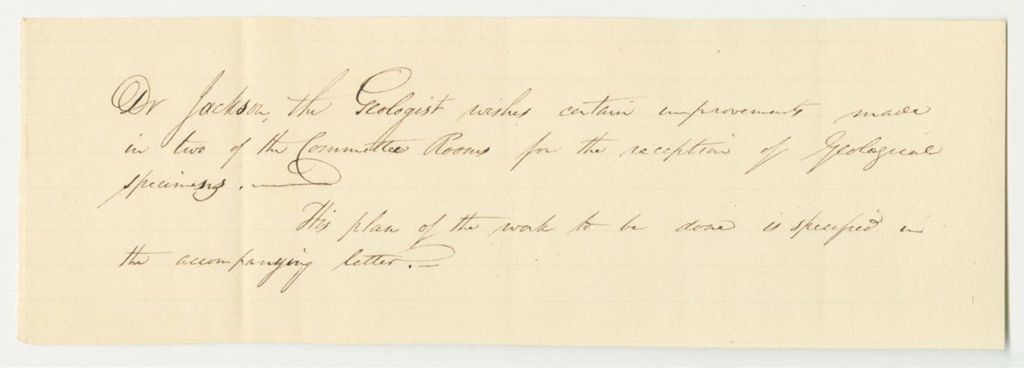 Dr Jackson, the Geologist wishes certain improvements made
in two of the Committee Rooms for the reception of Geological
specimens. —
His plan of the work to be done is specified in
the accompanying letter. —